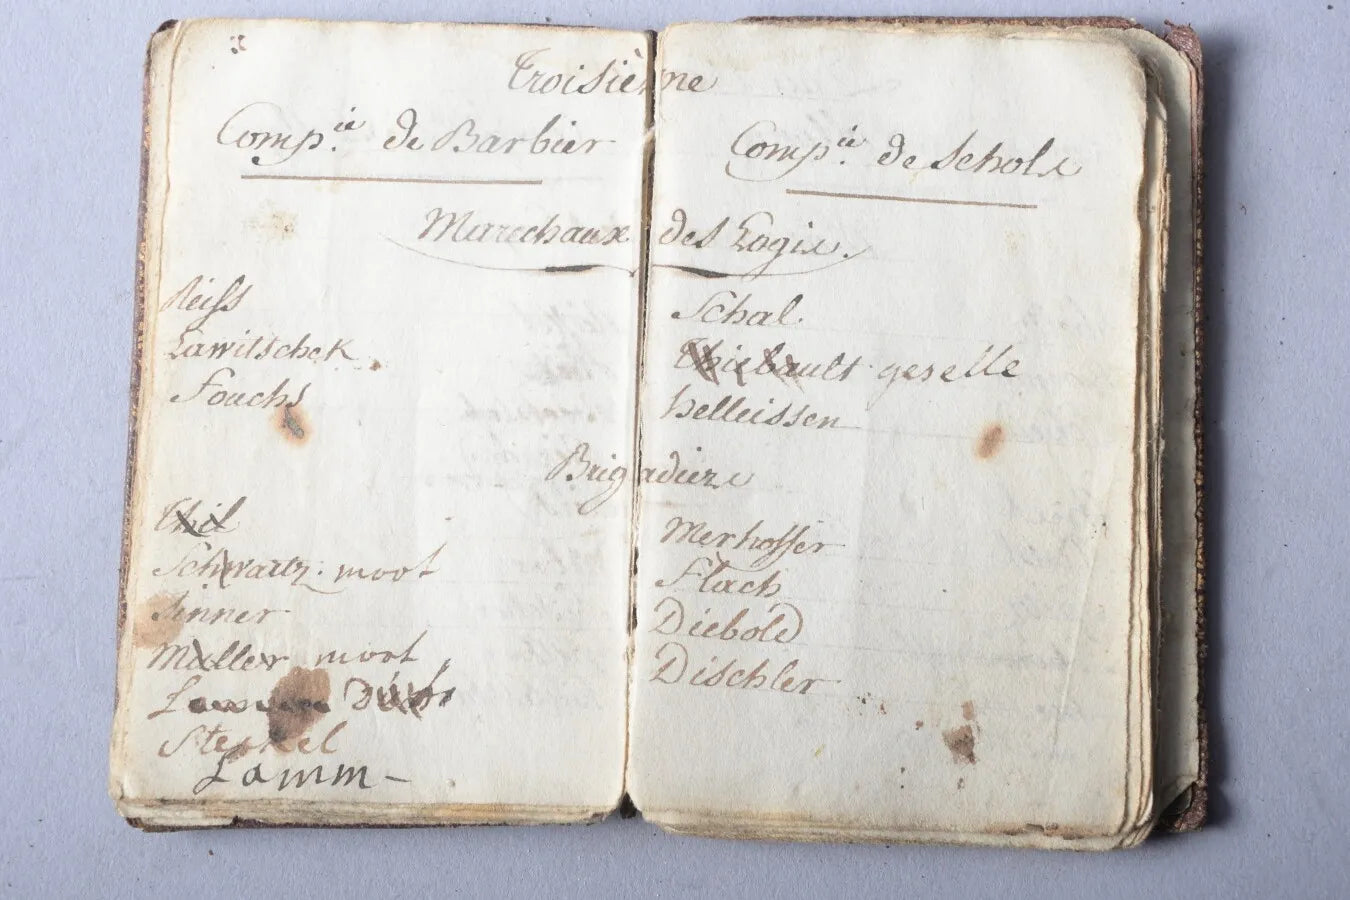 Troisième
Comp.ie de Barbier
Comp.ie de Schols
Marechaux des Logis.
Reiss
Lawitschek
Fouchs
Schal.
Thiebault geselle
helleissen
Brigadiers
Thil
Schwartz. moot
Sinner
Muller moot
Sterkel
Lamm -
Merhoffer
Flach
Diebold
Dischler